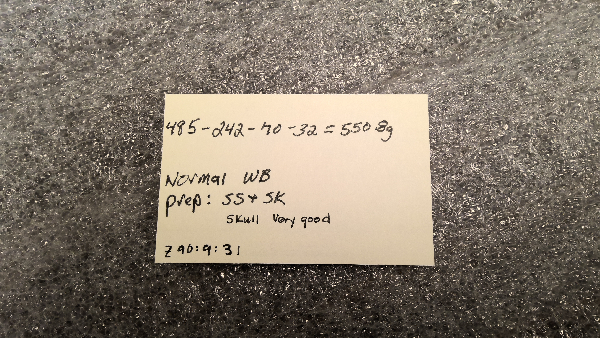 485-242-70-32=550.8g
Normal WB
prep: SS+SK
Skull Very good
Z90:9:31